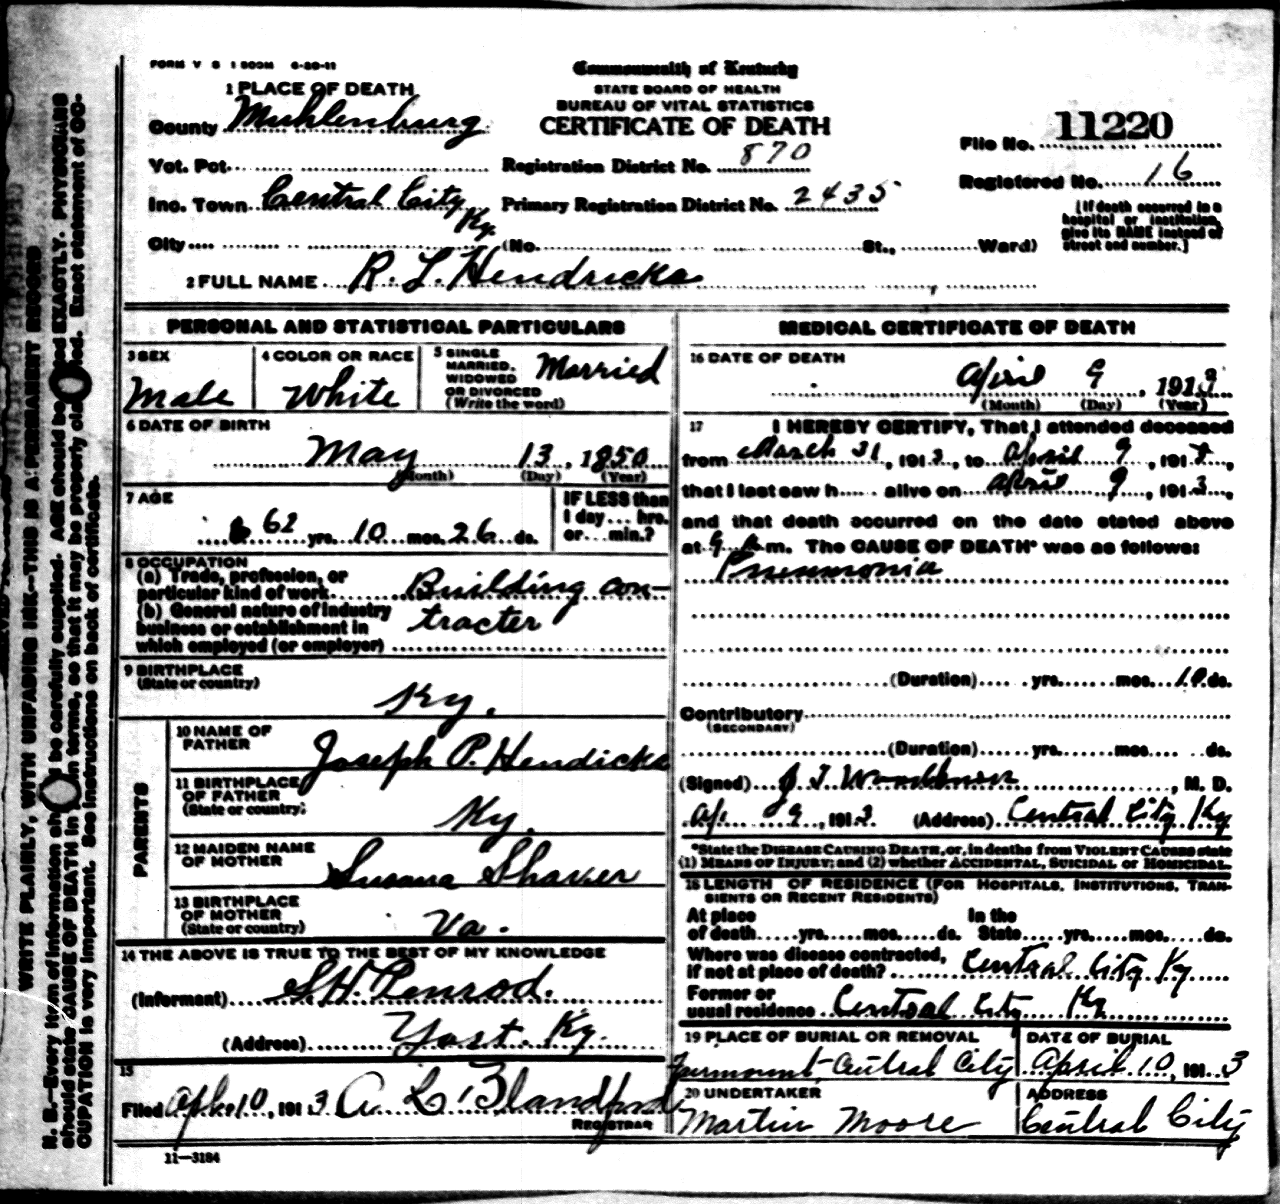 FORM V S 1 500M 6-20-11
Commonwealth of Kentucky
STATE BOARD OF HEALTH
BUREAU OF VITAL STATISTICS
CERTIFICATE OF DEATH
1 PLACE OF DEATH
County Muhlenburg
Vot. Pct.
Inc. Town Central City Ky.
City (No. St., Ward)
Registration District No. 870
Primary Registration District No. 2435
File No. 11220
Registered No. 16
[If death occurred in a
hospital or institution,
give its NAME instead of
street and number.]
2 FULL NAME R. L. Hendricks
PERSONAL AND STATISTICAL PARTICULARS
3 SEX
Male
4 COLOR OR RACE
White
5 SINGLE
MARRIED,
WIDOWED
OR DIVORCED
(Write the word)
Married
6 DATE OF BIRTH
May 13, 1850
(Month) (Day) (Year)
7 AGE
62 yrs. 10 mos. 26 ds.
IF LESS than
1 day... hrs.
or... min.?
8 OCCUPATION
(a) Trade, profession, or
particular kind of work Building con-
(b) General nature of industry
business or establishment in tracter
which employed (or employer)
9 BIRTHPLACE
(State or country)
Ky.
PARENTS
10 NAME OF
FATHER
Joseph P. Hendicks
11 BIRTHPLACE
OF FATHER
(State or country)
Ky.
12 MAIDEN NAME
OF MOTHER
Susana Shaver
13 BIRTHPLACE
OF MOTHER
(State or country)
Va.
14 THE ABOVE IS TRUE TO THE BEST OF MY KNOWLEDGE
(Informant) S.H. Penrod.
(Address) Yost. Ky.
15
Filed Apl. 10, 1913 A. L. Blandford
REGISTRAR
11—3184
MEDICAL CERTIFICATE OF DEATH
16 DATE OF DEATH
April 9, 1913
(Month) (Day) (Year)
17 I HEREBY CERTIFY, That I attended deceased
from March 31, 1913, to April 9, 191
that I last saw h alive on April 9, 1913,
and that death occurred on the date stated above
at 9 a m. The CAUSE OF DEATH* was as follows:
Pneumonia
(Duration) yrs. mos. 10 ds.
Contributory
(SECONDARY)
(Duration) yrs. mos. ds.
(Signed) J T , M. D.
Ap. 9, 1913 (Address) Central City Ky
*State the DISEASE CAUSING DEATH, or, in deaths from VIOLENT CAUSES state
(1) MEANS OF INJURY; and (2) whether ACCIDENTAL, SUICIDAL or HOMICIDAL.
18 LENGTH OF RESIDENCE (FOR HOSPITALS, INSTITUTIONS, TRAN-
SIENTS OR RECENT RESIDENTS)
At place In the
of death yrs. mos. ds. State yrs. mos. ds.
Where was disease contracted,
if not at place of death? Central City Ky
Former or
usual residence Central City Ky
19 PLACE OF BURIAL OR REMOVAL
Fairmount, Central City
DATE OF BURIAL
April 10, 1913
20 UNDERTAKER
Martin Moore
ADDRESS
Central City
WRITE PLAINLY, WITH UNFADING INK—THIS IS A PERMANENT RECORD
N. B.—Every item of information should be carefully supplied. AGE should be stated EXACTLY. PHYSICIANS
should state CAUSE OF DEATH in plain terms, so that it may be properly classified. Exact statement of OC-
CUPATION is very important. See instructions on back of certificate.